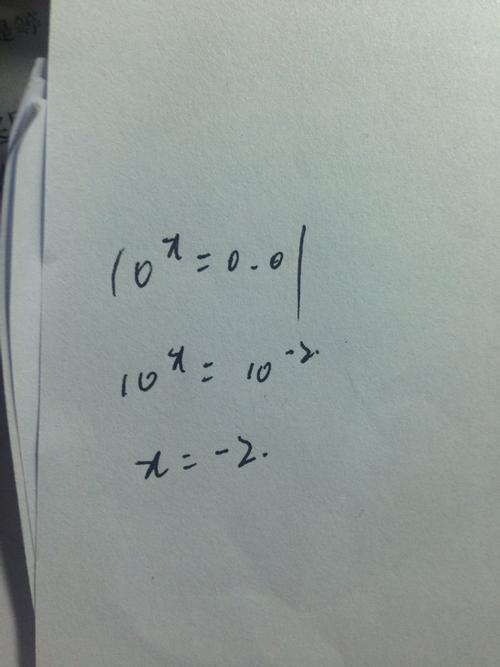 10^x = 0.01
10^x = 10^-2.
x = -2.